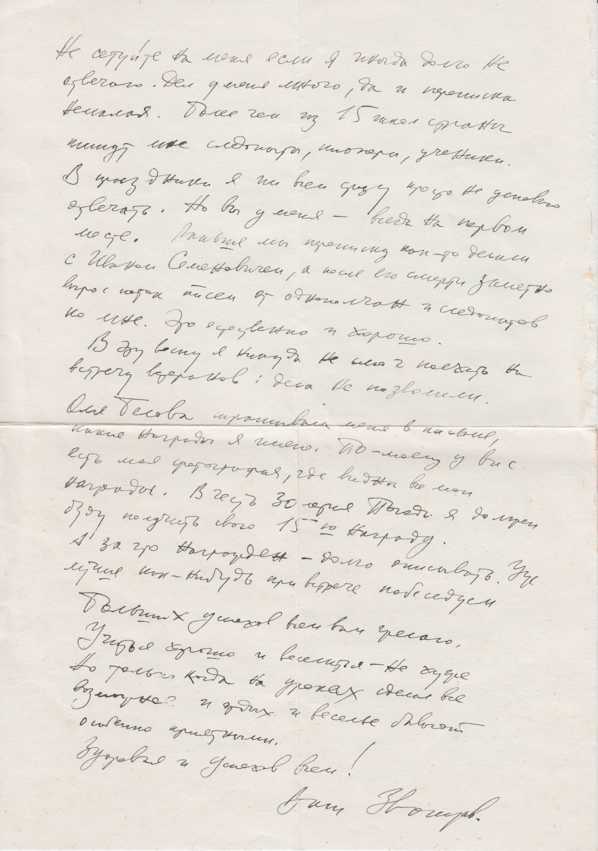 Не сетуйте на меня если я иногда долго не
отвечаю. Дел у меня много, да и переписка
немалая. Более чем из 15 школ страны
пишут мне следопыты, пионеры, ученики.
В праздники я им всем сразу просто не успеваю
отвечать. Но вы у меня – всегда на первом
месте. Раньше мы переписку как-то делили
с Иваном Семеновичем, а после его смерти заметно
возрос поток писем от однополчан и следопытов
ко мне. Это естественно и хорошо.
В эту весну я никуда не смог поехать на
встречу ветеранов: дела не позволили.
Оля Белова спрашивала меня в письме,
какие награды я имею. По-моему у вас
есть моя фотография, где видны все мои
награды. В честь 30-летия Победы я должен
буду получить свою 15-ю награду.
А за что награжден – долго описывать. Уж
лучше как-нибудь при встрече побеседуем
Больших успехов всем вам желаю.
Учиться хорошо и веселиться – не худо
Но только когда на уроках сделал все
возможное и отдых и веселье бывают
особенно приятными.
Здоровья и успехов всем!
Ваш